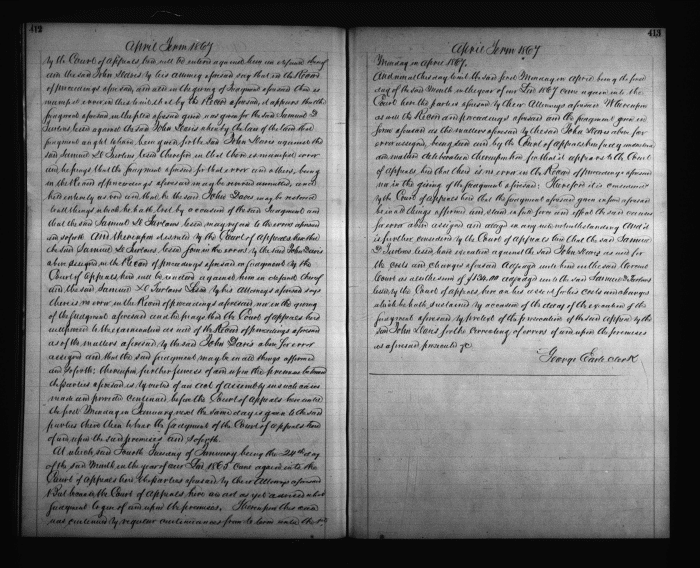 412
April Term 1867
by the Court of appeals here will be entered against him in default thereof
and the said John Davis by his attorney aforesaid say that in the Record
of proceedings aforesaid, and also in the giving of Judgment aforesaid there is
manifest error in this to wit that by the Record aforesaid, it appears that the
judgment aforesaid in the plea aforesaid given was given for the said Samuel D
lessee against the said John Davis whereby the law of the land
judgment ought to have been given for the said John Davis against the
said Samuel lessee therefor in that there is manifest error
and he prays that the judgment aforesaid for that error and others being
in the Record of proceedings aforesaid may be reversed annulled, and
held entirely as void and that he the said John Davis may be restored
to all things which he hath lost by occasion of the said Judgment and
that the said Samuel lessee may rejoin to the errors aforesaid
and so forth. And thereupon it is ruled by the Court of appeals here that
the said Samuel lessee join the errors by the said John Davis
above assigned in the Record of proceedings aforesaid or judgment by the
Court of appeals here will be entered against him in default thereof
and the said Samuel Lessee by his Attorney aforesaid says
there is no error in the Record of proceedings aforesaid nor in the giving
of the judgment aforesaid and he prays that the Court of appeals here
will proceed to the examination as well of the Record of proceedings aforesaid
as of the matters aforesaid by the said John Davis above for error
assigned and that the said judgment may be in all things affirmed
and so forth; thereupon further process of and upon the premises between
the parties aforesaid is by virtue of an act of assembly in such cases
made and provided continued before the Court of appeals here until
the first Monday in January next the same day is given to the said
parties there then to hear the judgment of the Court of appeals here
of and upon the said premises and so forth.
At which said Fourth Tuesday of January being the 24th day
of the said Month in the year of our Lord 1865 come again into the
Court of appeals here the parties aforesaid by their Attorneys aforesaid
But because the Court of appeals here are not as yet advised what
judgment to give of and upon the premises. Thereupon this cause
was continued by regular continuances from term to term until the 1st
413
April Term 1867
Monday in April 1867.
And now at this day to wit the said first Monday in April being the first
day of the said Month in the year of our Lord 1867 come again into the
Court here the parties aforesaid by their Attorneys aforesaid Whereupon
as well the Record and proceedings aforesaid and the judgment given in
form aforesaid as the matters aforesaid by the said John Davis above for
error assigned, being seen and by the Court of appeals here fully understood
and mature deliberation thereupon had for that it appears to the Court
of appeals here that there is no error in the Record of proceedings aforesaid
nor in the giving of the judgment aforesaid: Therefore it is considered
by the Court of appeals here that the judgment aforesaid given in form aforesaid
be in all things affirmed and stand in full force and effect the said causes
for error above assigned and alleged in any wise notwithstanding And it
is further considered by the Court of appeals here that the said Samuel
D lessee have execution against the said John Davis as well for
the costs and charges aforesaid adjudged unto him in the said Circuit
Court as also the sum of $134.00 adjudged unto the said Samuel
lessee by the Court of appeals here on his assent for his costs and charges
which he hath sustained by occasion of the delay of the execution of the
judgment aforesaid by pretext of the prosecution of the said appeal by the
said John Davis for the correcting of errors of and upon the premises
as aforesaid prosecuted &c
George Earle Clerk